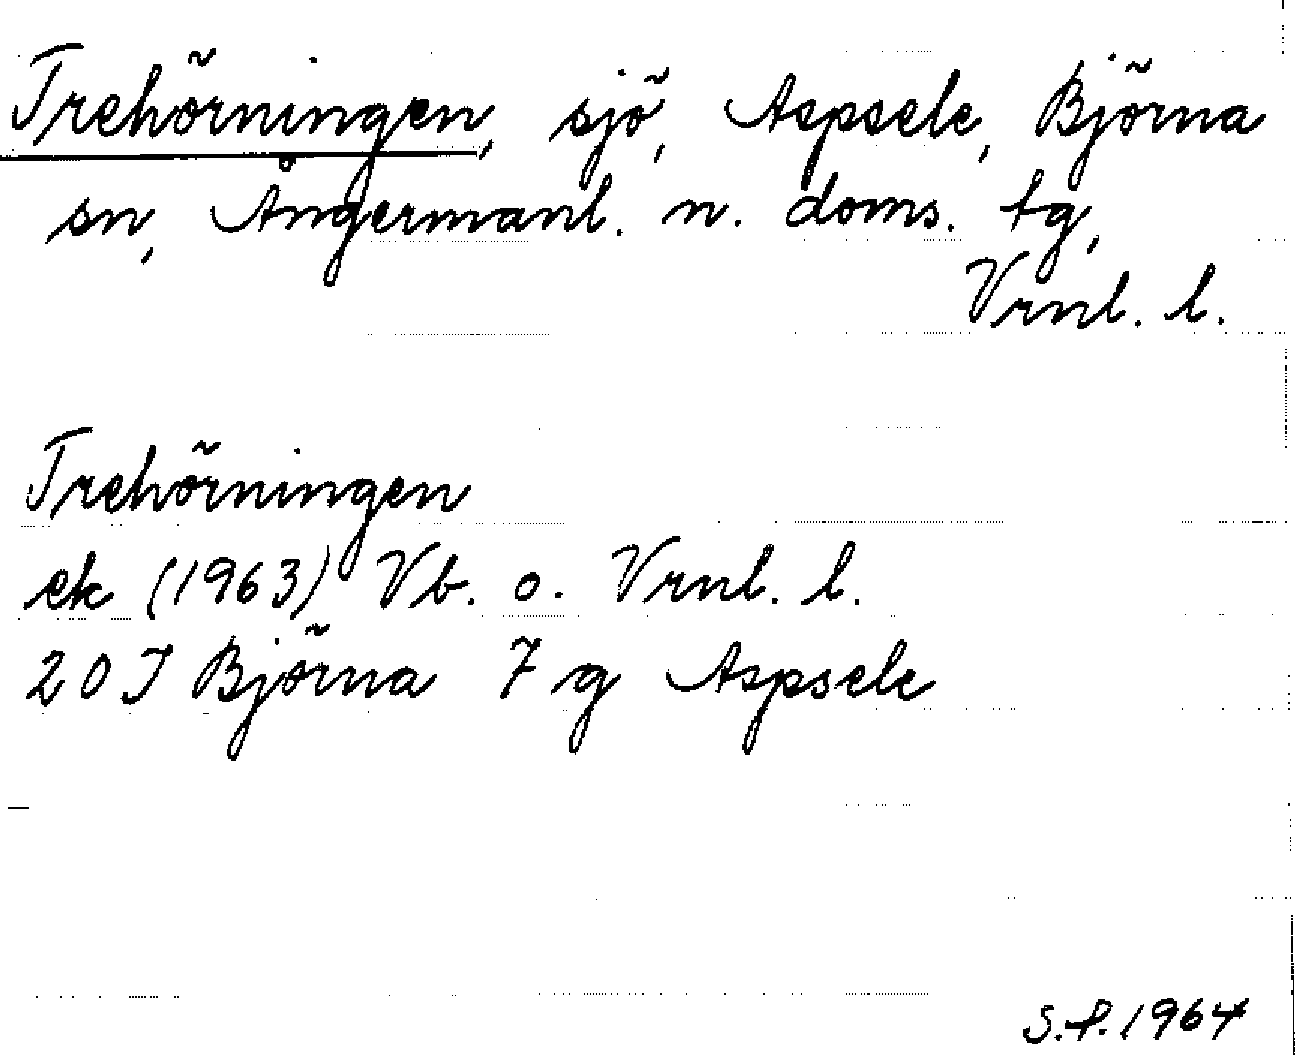 Trehörningen, sjö, Aspsele, Björna
sn, Ångermanl. n. doms. tg,
Vrnl. l.
Trehörningen
ek (1963) Vb. o. Vrnl. l.
20 J Björna 7 g Aspsele
S.P. 1964